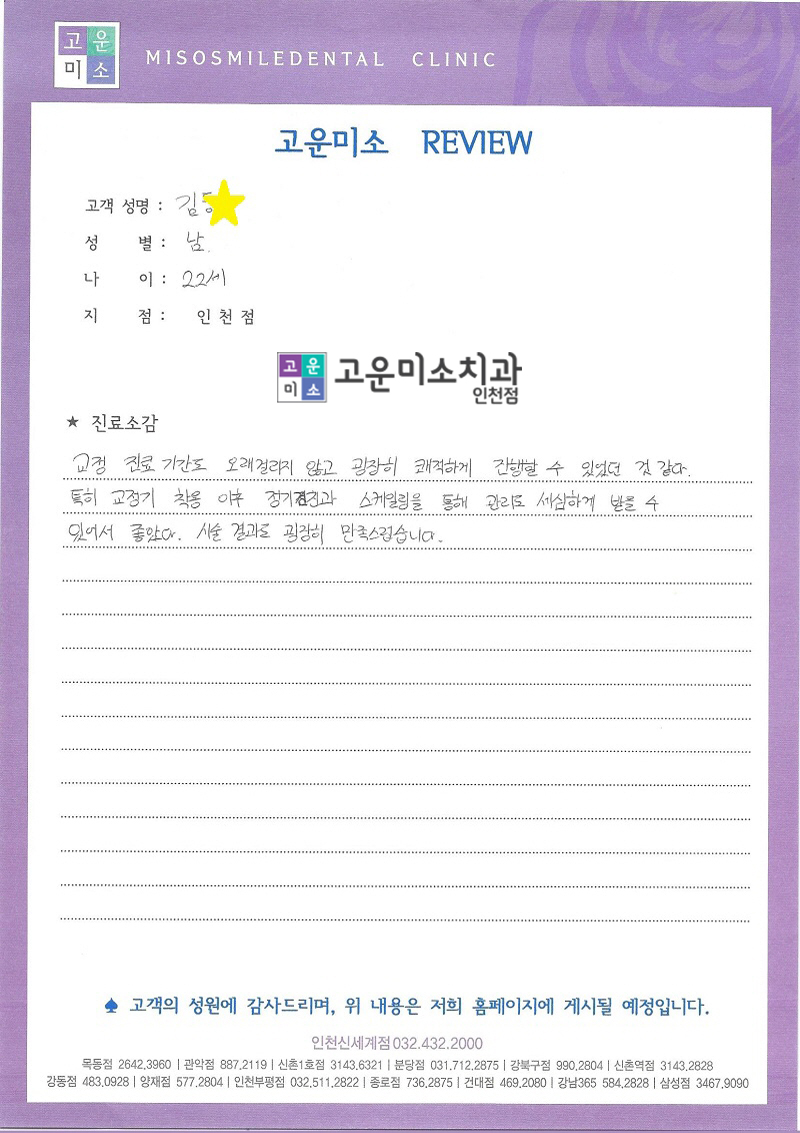 고운
미소
MISOSMILEDENTAL CLINIC
고운미소 REVIEW
고객 성명 : 김
성 별 : 남.
나 이 : 22세
지 점 : 인천점
고운
미소
고운미소치과
인천점
★ 진료소감
교정 진료 기간도 오래걸리지 않고 굉장히 쾌적하게 진행할 수 있었던 것 같다.
특히 교정기 착용 이후 정기검진과 스케일링을 통해 관리도 세심하게 받을 수
있어서 좋았다. 시술 결과도 굉장히 만족스럽습니다.
♠ 고객의 성원에 감사드리며, 위 내용은 저희 홈페이지에 게시될 예정입니다.
인천신세계점 032.432.2000
목동점 2642.3960 | 관악점 887.2119 | 신촌1호점 3143.6321 | 분당점 031.712.2875 | 강북구점 990.2804 | 신촌역점 3143.2828
강동점 483.0928 | 양재점 577.2804 | 인천부평점 032.511.2822 | 종로점 736.2875 | 건대점 469.2080 | 강남365 584.2828 | 삼성점 3467.9090